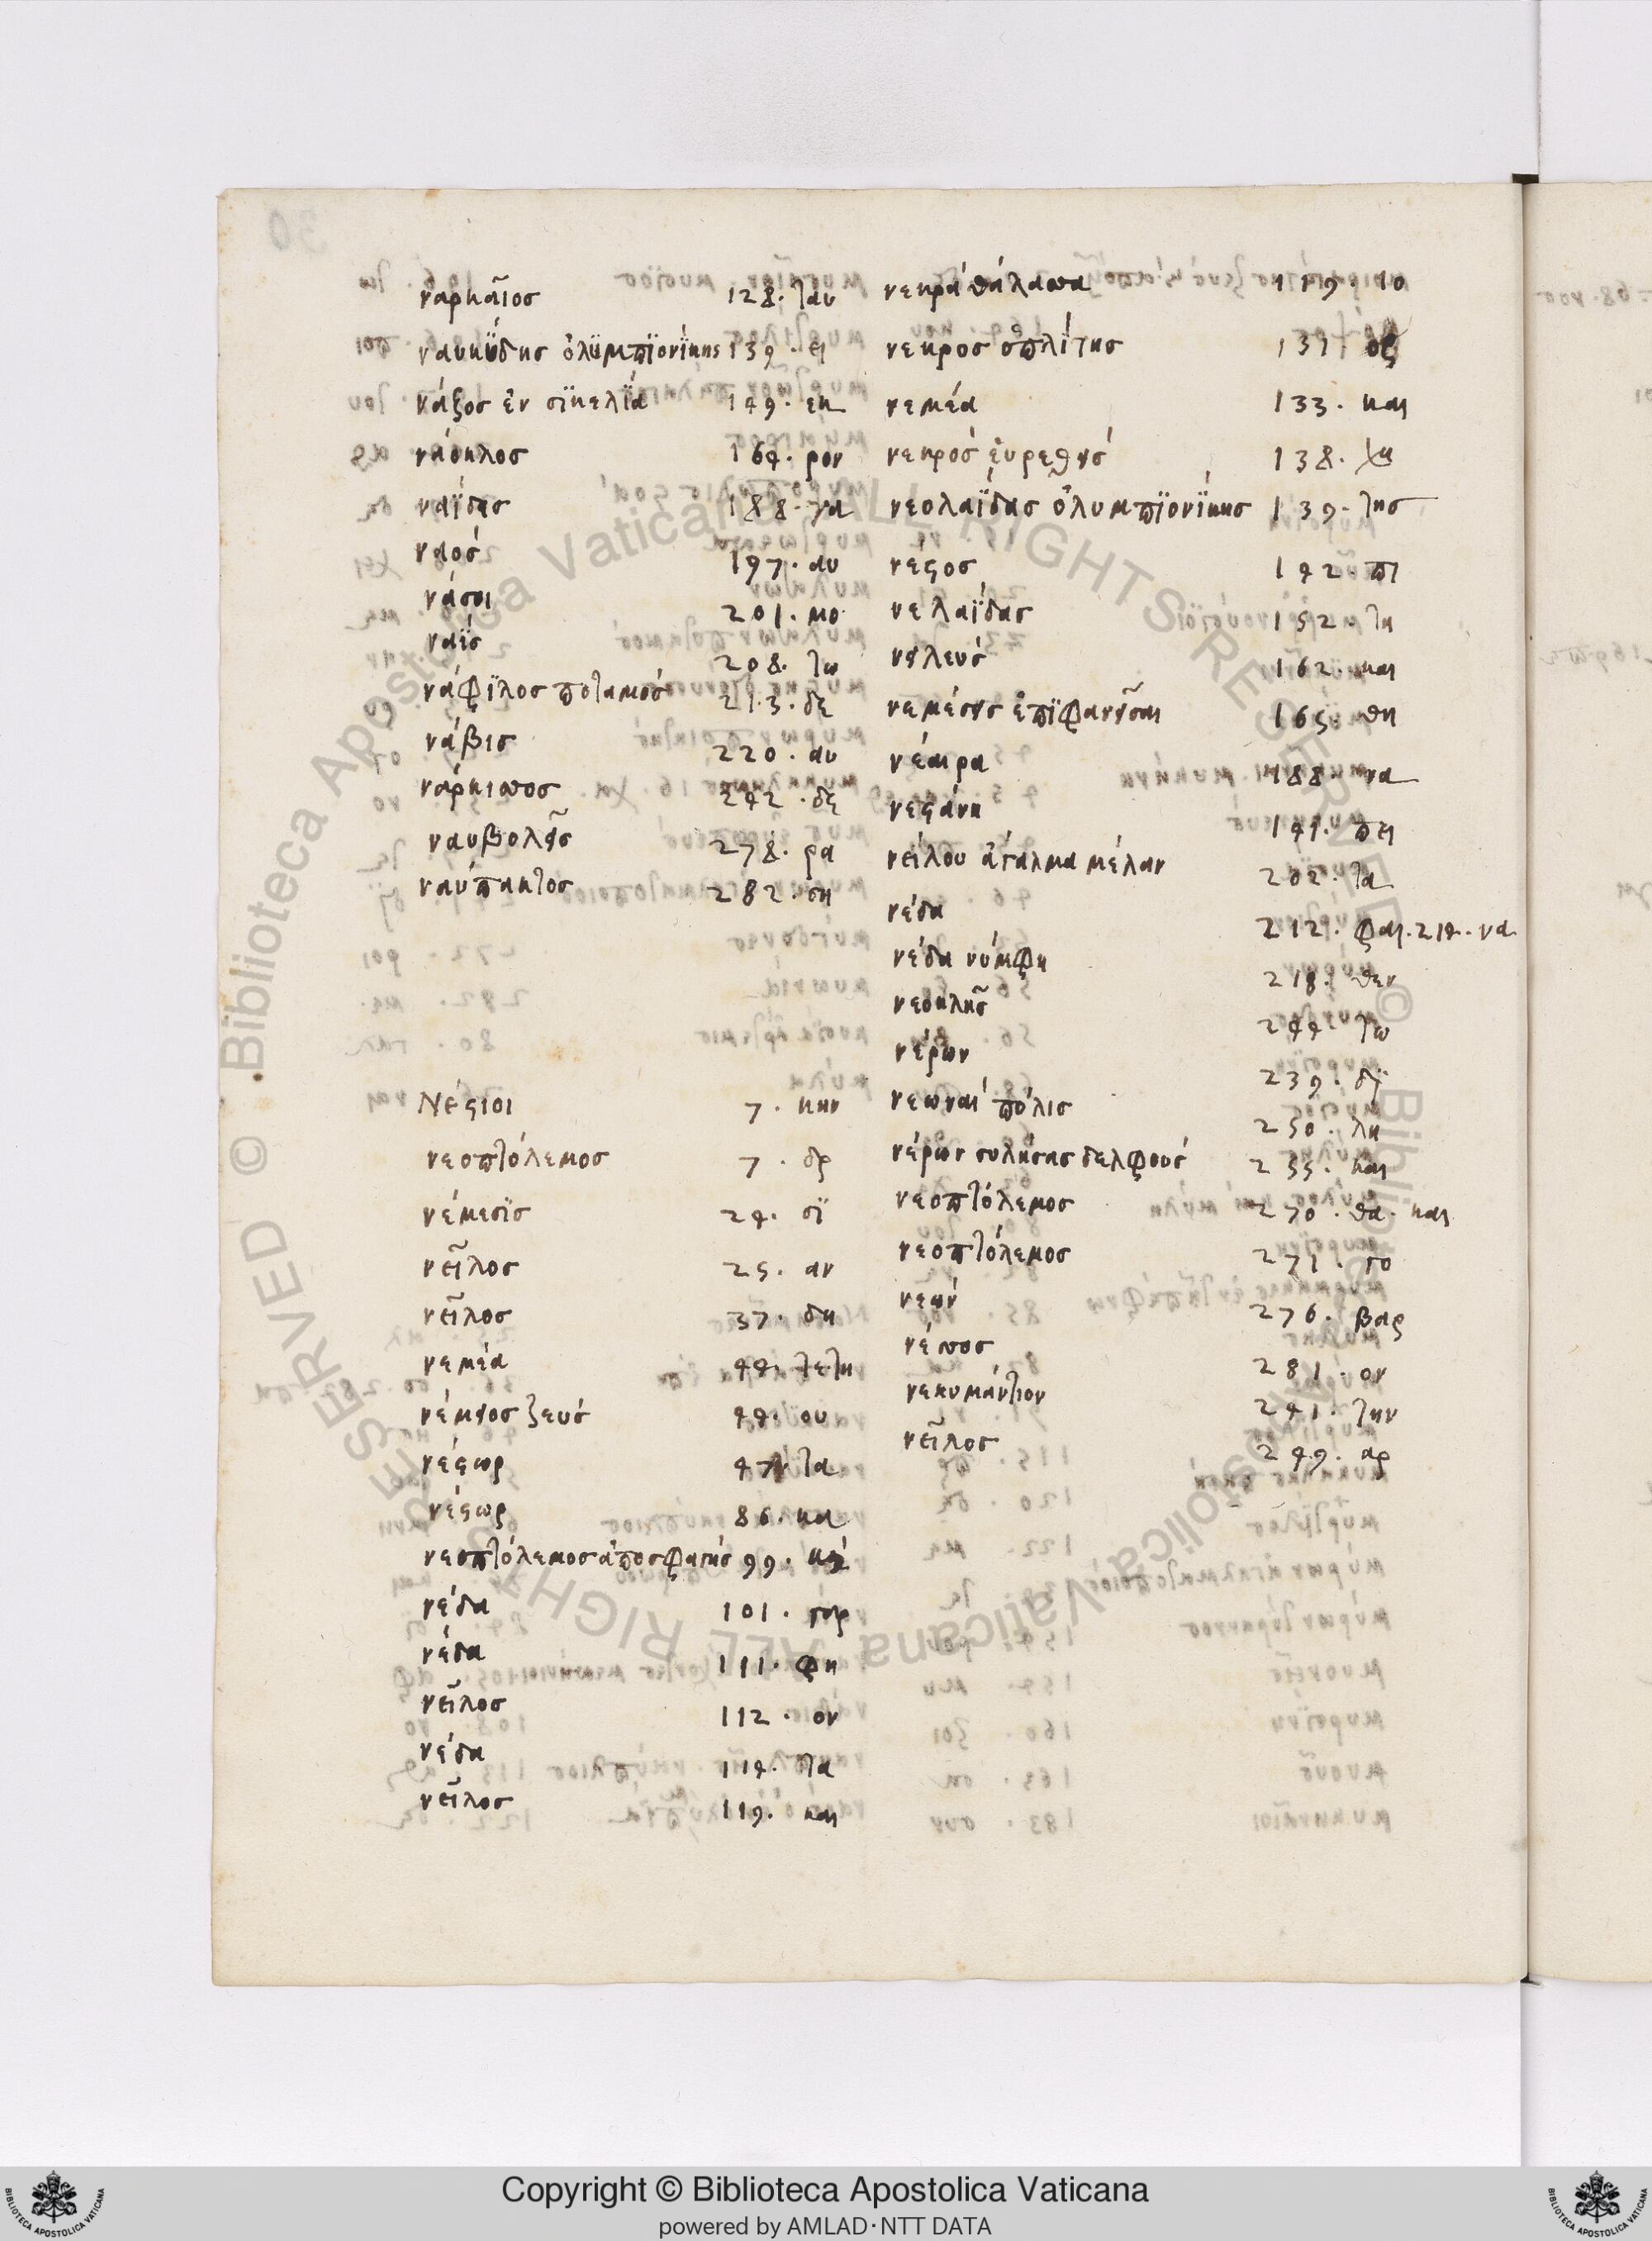 ναρκαῖος 128. ταυ
ναυκΰδης ὀλϋμπϊονΐκης 139. ει
νάξος ἐν σϊκελΐα 149. εκ
νάοκλος 164. ρον
ναΐδας 188. να
ναός 197. αυ
νάσοι 201. μο
ναΐς 208. τω
νάφϊλος ποταμός 213. δε
νάβισ 220. αυ
νάρκισσος 242. δε
ναυβολῆς 278. ρα
ναύπακτος 282. ση
Νέστιοι 7. κην
νεοπτόλεμος 7. δρ
νέμεσϊς 24. σϊ
νεῖλος 25. αν
νεῖλος 37. δη
νεμέα 44. τετη
νέμηος ζευς 44. ου
νέστωρ 47. τα
νέστωρ 86. κα
νεοπτόλεμος ἀποσφαγεὶς 99.
νέδα 101. γορ
νέδα 111. φη
νεῖλος 112. ον
νέδα 114. τα
νεῖλος 119. και
νεκρά θάλασσα 119. το
νεκρος ὁπλίτης 131.
νεμέα 133. και
νεκρός εὑρεθής 138.
νεολαΐδας ὀλυμπϊονΐκης 139. της
νέστος 142. πι
νελαΐδας 152. τη
νηλευς 162. και
νεμέσης ἐπϊφανῆσαι 165. θη
νέαιρα 188. να
νεστάνη 191. πει
νείλου ἄγαλμα μέλαν 202. τα
νέδα 212. φαι. 214. να
νέδη νύμφη 218. θεν
νεοκλῆς 244. τω
νέρων 239. δϊ
νεωναί πόλις 250. λη
νέρων συλήσας δελφούς 255. και
νεοπτόλεμος 270. θα. και
νεοπτόλεμος 271. το
νεών 276. βαρ
νέσσος 281. ον
νεκυμάντιον 241. την
νεῖλος 249. αρ
Copyright © Biblioteca Apostolica Vaticana
powered by AMLAD·NTT DATA